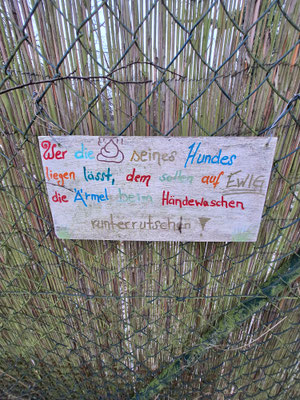 Wer die 💩 seines Hundes
liegen lässt, dem sollen auf EWIG
die Ärmel beim Händewaschen
runterrutschen !